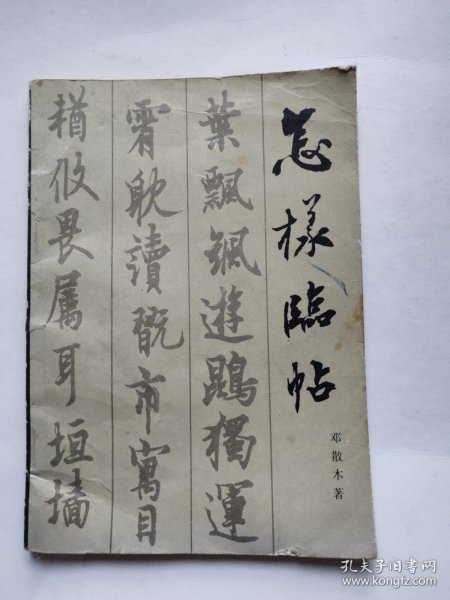 怎樣臨帖
邓散木著
葉飄颻遊鵾獨運
霄躭讀翫市寓目
輶攸畏屬耳垣墻
孔夫子旧书网
www.kongfz.com